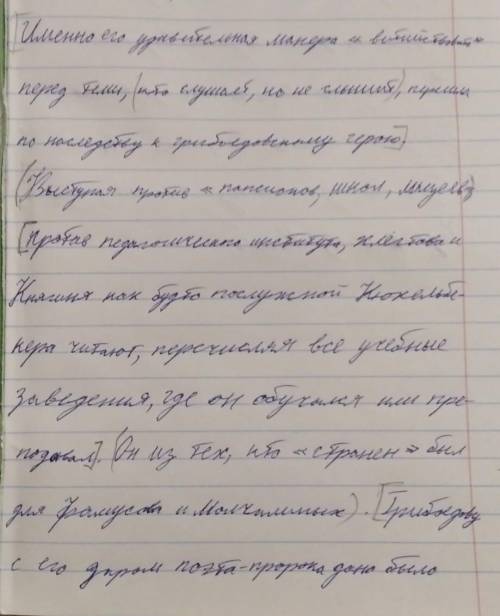 [Именно его удивительная манера «витийствовать»
перед теми, (кто слушает, но не слышит), перешла
по наследству к грибоедовскому герою]
(Выступая против «пансионов, школ, лицеев»)
[против педагогического института, Хлёстова и
Княгиня как будто послужной Кюхельбе-
кера читают, перечисляя все учебные
заведения, где он обучался или пре-
подавал]. (Он из тех, кто «странен» был
для Фамусова и Молчалиных). [Грибоедову
с его даром поэта-пророка дано было